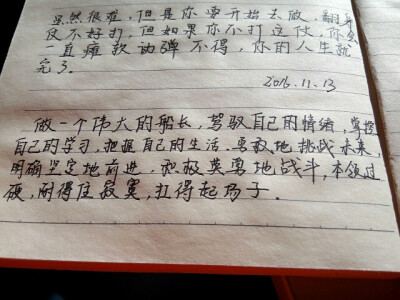 虽然很难，但是你要开始去做，翻身
仗不好打，但如果你不打这仗，你会
一直瘫软动弹不得，你的人生就
完了。
2016.11.13
做一个伟大的船长，驾驭自己的情绪，掌控
自己的学习，把握自己的生活。勇敢地挑战未来，
明确坚定地前进，积极英勇地战斗，本领过
硬，耐得住寂寞，扛得起场子。